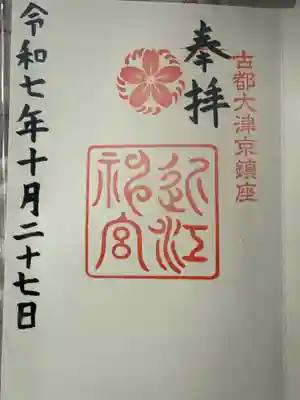 古都大津京鎮座
奉拝
近江神宮
令和七年十月二十七日